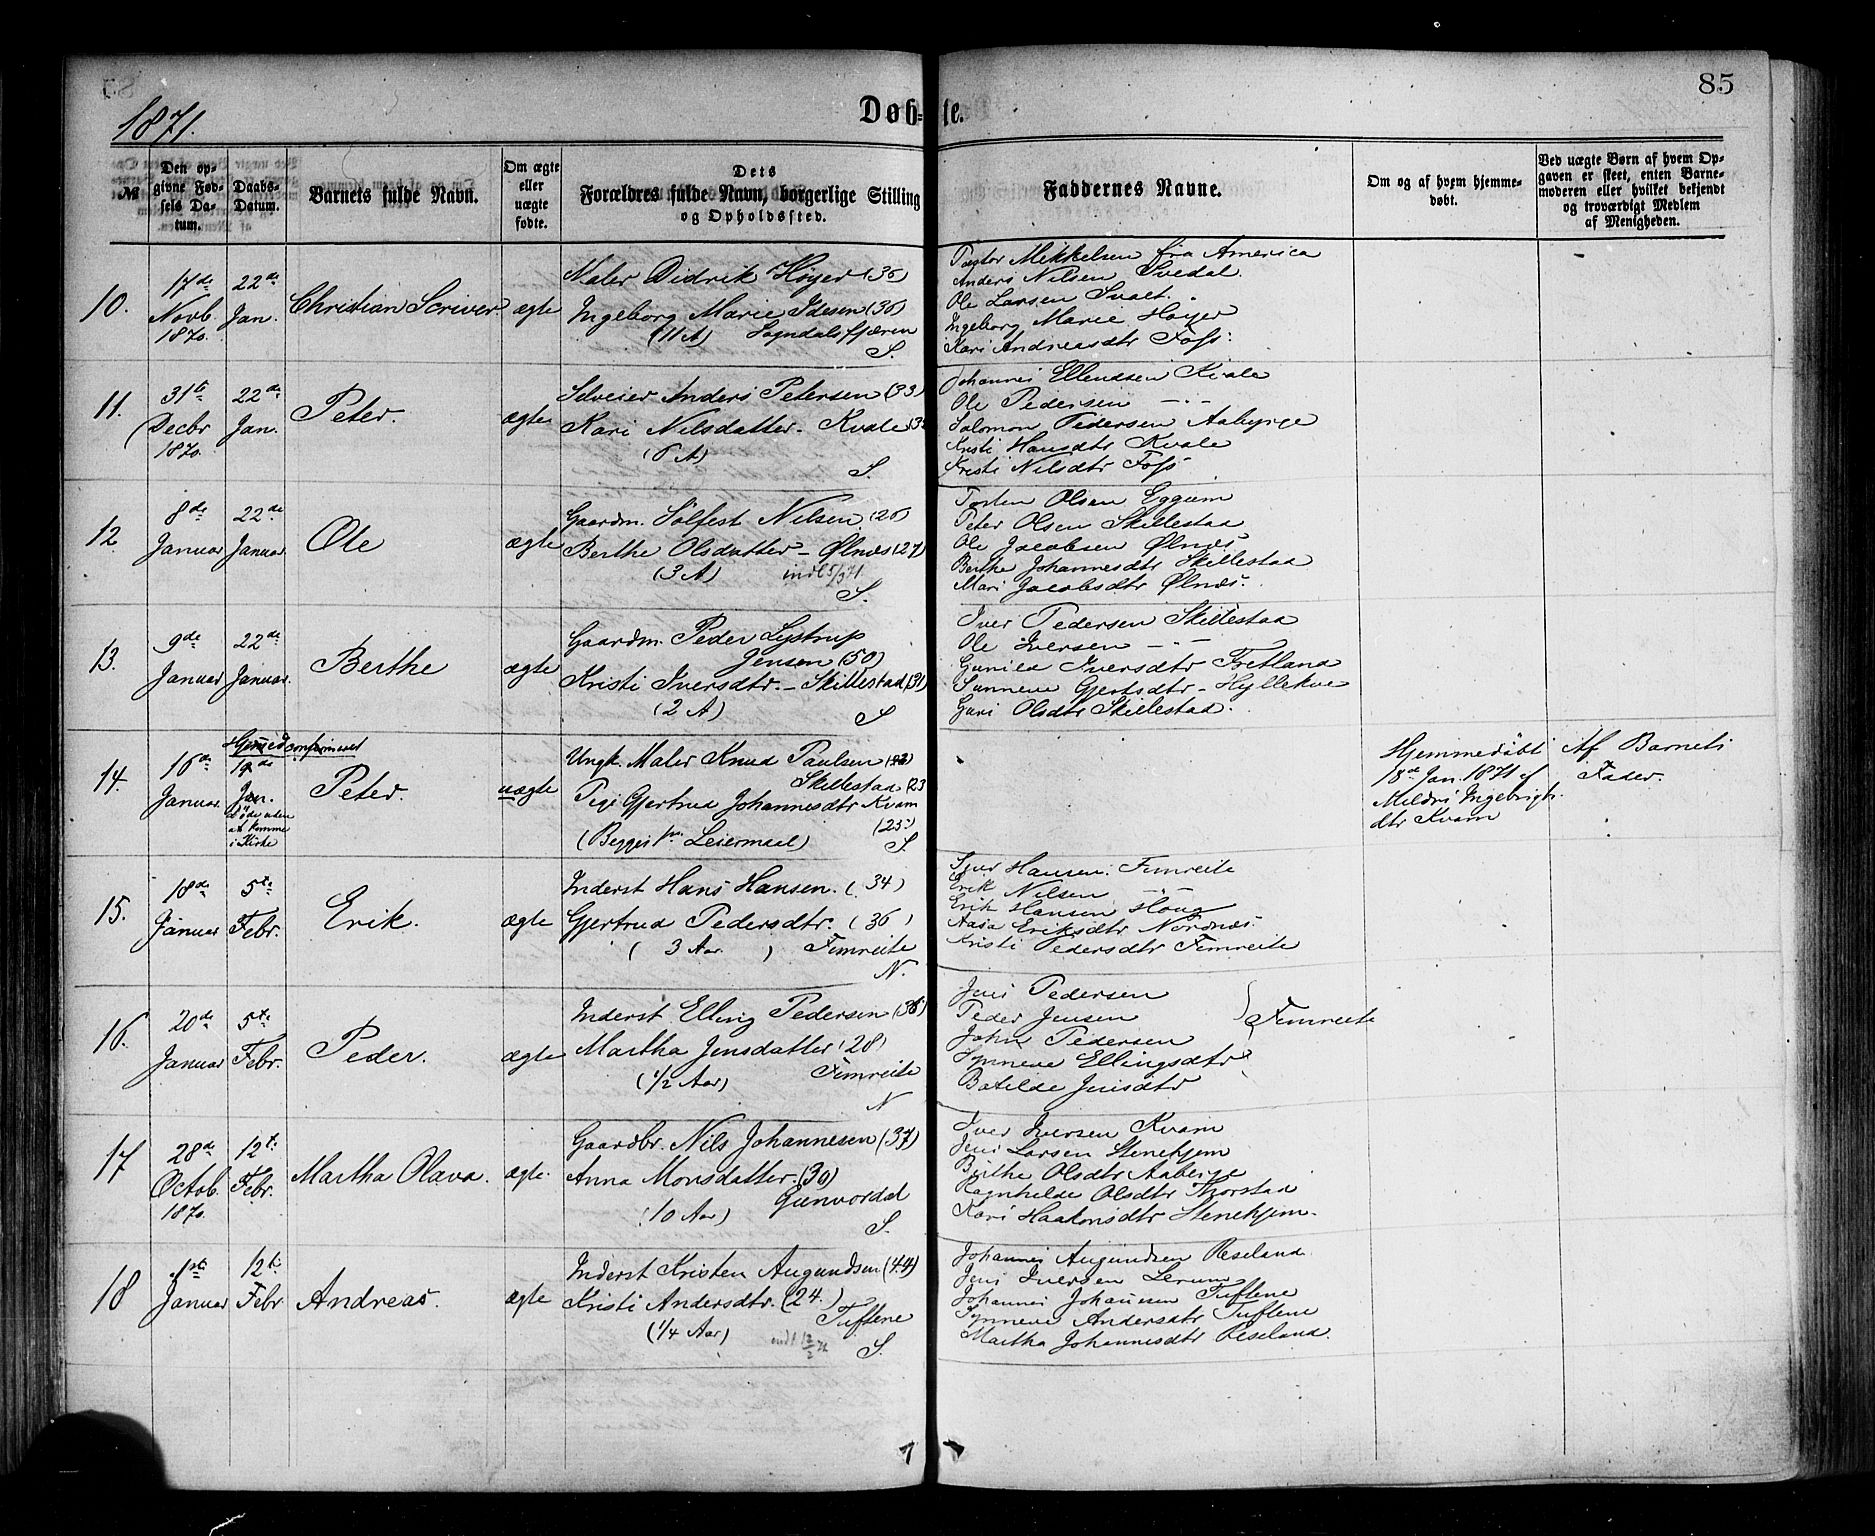 85
1871.
Døb-te.
№
Den op-
givne Fød-
sels Da-
tum.
Daabs-
Datum.
Barnets fulde Navn.
Om ægte
eller
uægte
fødte.
Dets
Forældres fulde Navn, borgerlige Stilling
og Opholdssted.
Faddernes Navne.
Om og af hvem hjemme-
døbt.
Ved uægte Børn af hvem Op-
gaven er skeet, enten Barne-
moderen eller hvilket bekjendt
og troværdigt Medlem
af Menigheden.
10.
17de
Novb.
1870.
22de
Jan.
Christian Scriver
ægte
Maler Didrik Høyer (36)
Ingeborg Marie Idesen (36)
(11 A) Sogndalsfjæren
S.
Pastor Mikkelsen fra America
Anders Nilsen Svedal.
Ole Larsen Svalt.
Ingeborg Marie Høyer
Kari Andreasdtr Foss.
11.
31te
Decbr
1870.
22de
Jan.
Peter.
ægte
Selveier Anders Petersen (33)
Kari Nilsdatter - Kvale
(6 A)
S.
Johannes Ellendsen Kvale
Ole Pedersen -"-
Salomon Pedersen Aaberge
Kristi Hansdtr Kvale
Kristi Nilsdtr Foss
12
8de
Januar
22de
Januar.
Ole
ægte
Gaardm. Sølfest Nilsen (26)
Berthe Olsdatter - Ølnæs (27)
(3 A)
S.
Torsten Olsen Eggum
Peter Olsen Skillestad
Ole Jacobsen Ølnæs
Berthe Johannesdtr Skillestad
Mari Jacobsdtr Ølnæs.
13.
9de
Januar
22de
Januar.
Berthe
ægte
Gaardm. Peder Lystrup
Jensen (50)
Kristi Iversdtr. - Skillestad (31)
(2 A)
S
Iver Pedersen Skillestad
Ole Iversen -"-
Gunild Iversdtr Fretland
Sunneve Gjertsdtr - Hyllekve
Guri Olsdtr Skillestad.
14.
16de
Januar.
Jan.
Døde uden
at komme
i Kirke
Peter.
uægte
Ungk. Maler Knud Paulsen
Skillestad (23
Pige Gjertrud Johannesdtr Kvam
(25)
(Begges 1ste Leiermaal)
S.
Hjemmedøbt
18de Jan. 1871 af
Mildri Ingebrigts-
dtr Kvam
Af Barnets
Fader.
15.
18de
Januar
5te
Febr.
Erik.
ægte
Inderst Hans Hansen. (34)
Gjertrud Pedersdtr. (36)
(3 Aar) Fimreite
N.
Sjur Hansen Fimreite
Erik Nilsen -"-
Erik Hansen Houg
Aasa Eriksdtr Nordnæs.
Kristi Pedersdtr Fimreite
16.
20de
Januar
5te
Febr.
Peder.
ægte
Inderst Elling Pedersen (36)
Martha Jensdatter (28)
(1/2 Aar) Fimreite
N
Jens Pedersen
Peder Jensen
John Pedersen
Synneve Ellingsdtr
Botilde Jensdtr
Fimreite
17
28de
Octob.
1870.
12te
Febr.
Martha Olava.
ægte.
Gaardbr. Nils Johannesen (37)
Anna Monsdatter (30)
(10 Aar) Gunvordal
S.
Iver Iversen Kvam
Jens Larsen Stenehjem
Berthe Olsdtr Aaberge
Ragnhilde Olsdtr Thorstad
Kari Haakonsdtr Stenehjem.
18
1ste
Januar
12te
Febr
Andreas.
ægte
Inderst Kristen Augundsen (44)
Kristi Andersdtr. (24.)
Tuftene
(1/4 Aar)
S.
Johannes Augundsen Reseland
Jens Iversen Lerum
Johannes Johannesen Tuftene
Synneve Andersdtr Tuftene
Martha Johannesdtr Reseland.